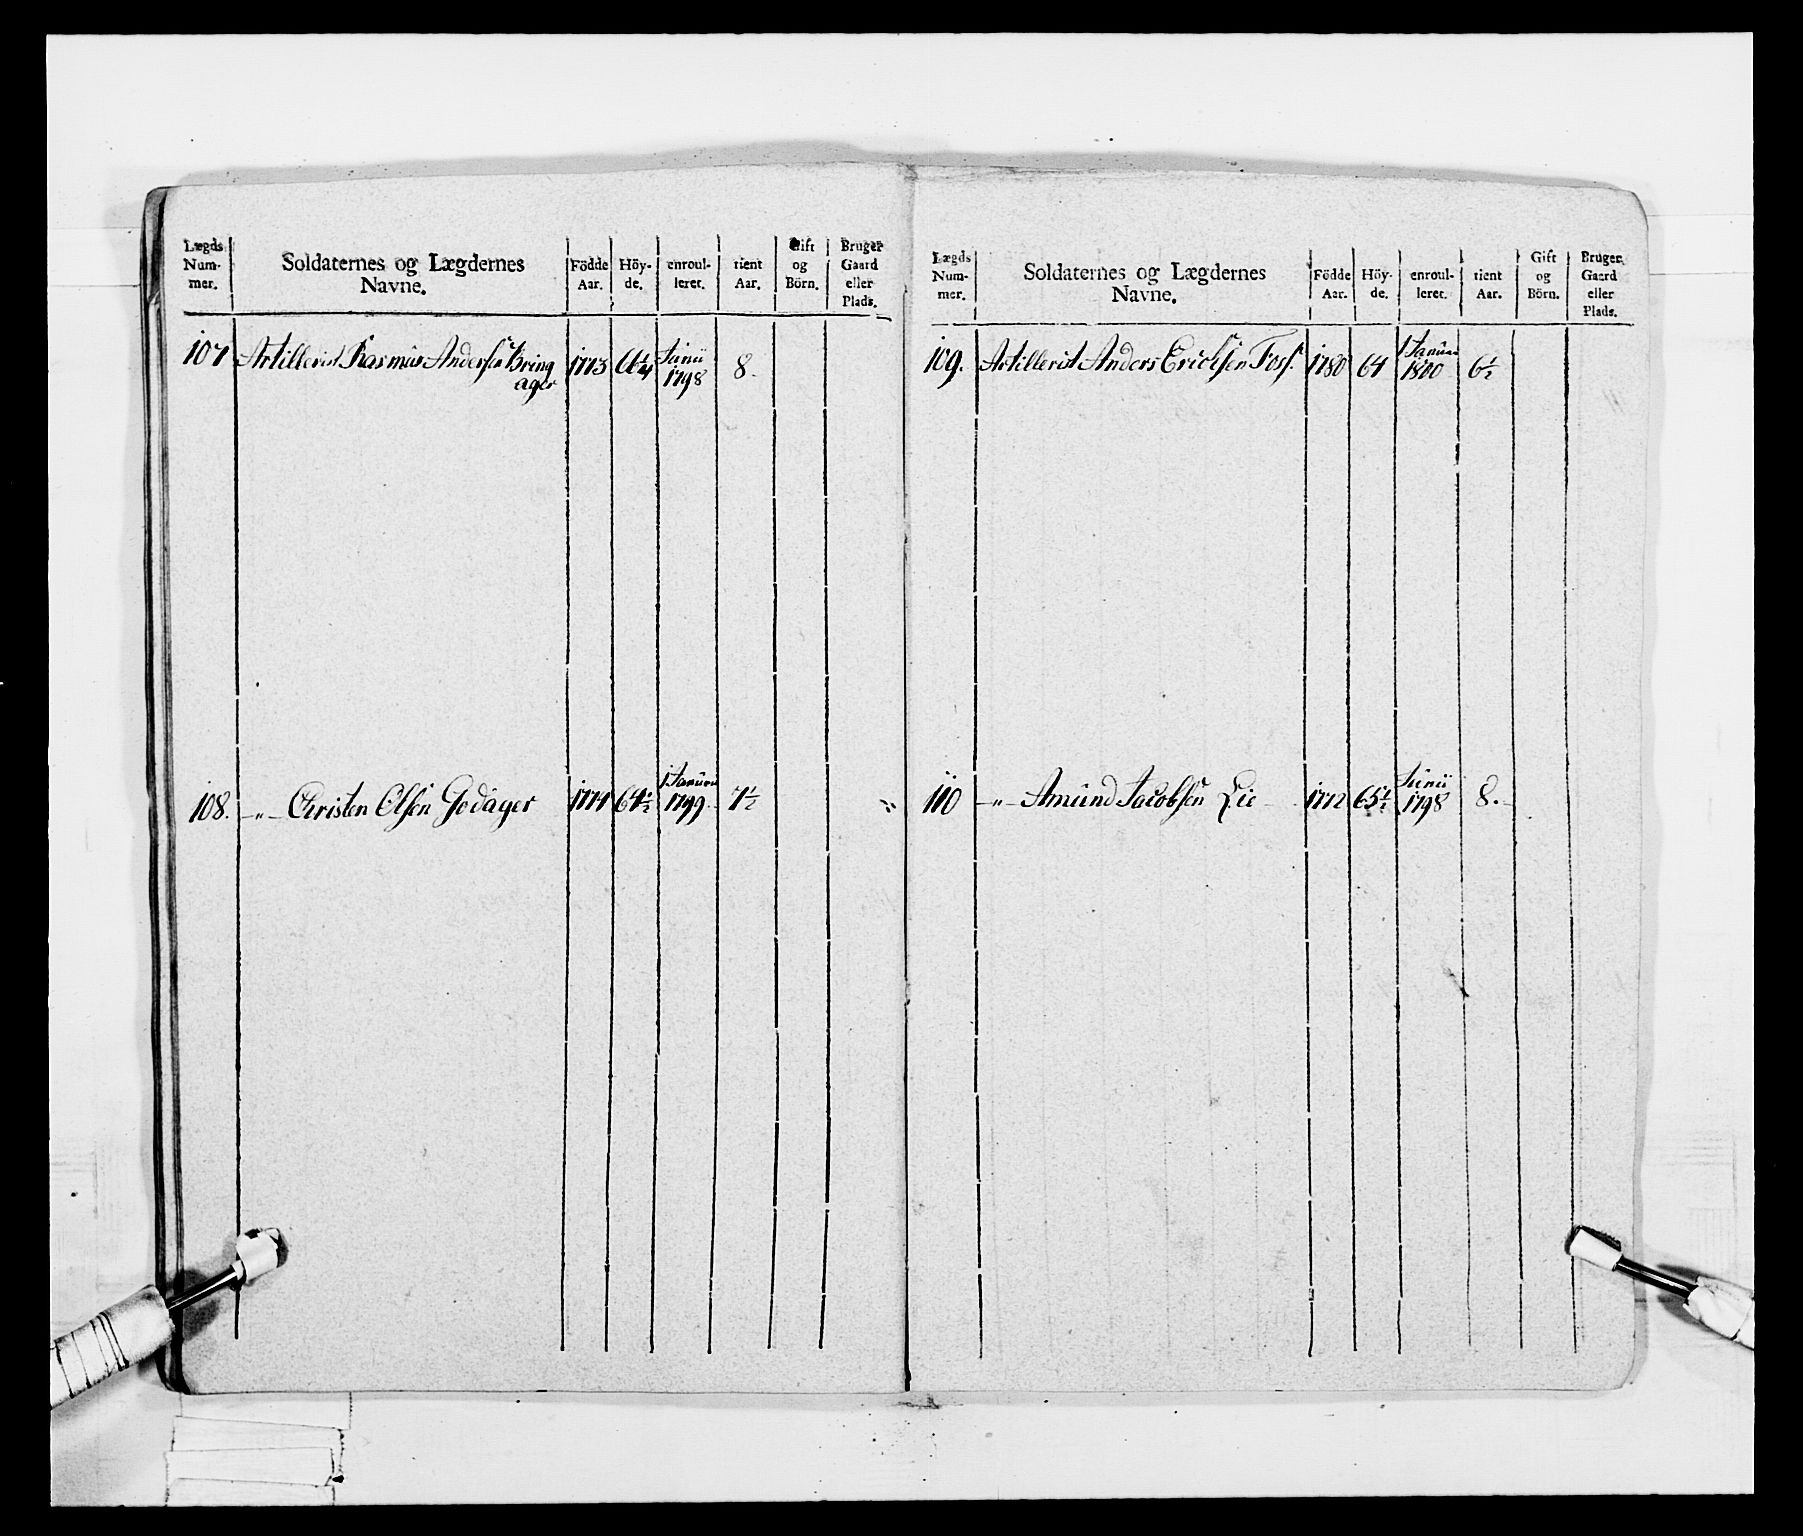 Lægds Num- mer. Soldaternes og Lægdernes Navne. Födde Aar. Höy- de. enroul- leret. tient Aar. Gift og Börn. Bruger Gaard eller Plads.
107 Artillerist Rasmus Andersen Bring 1773 Junii 8.
ager 1798
1 Januarii
108. -"- Christen Olsen Godager 1774 64½ 1799. 7½
Lægds Num- mer. Soldaternes og Lægdernes Navne. Födde Aar. Höy- de. enroul- leret. tient Aar. Gift og Börn. Bruger Gaard eller Plads.
1 Januar
109. Artillerist Anders Erichsen Foss. 1780 64 1800 6½
Junii
110 -"- Amund Jacobsen Lie 1772 65½ 1798 8.